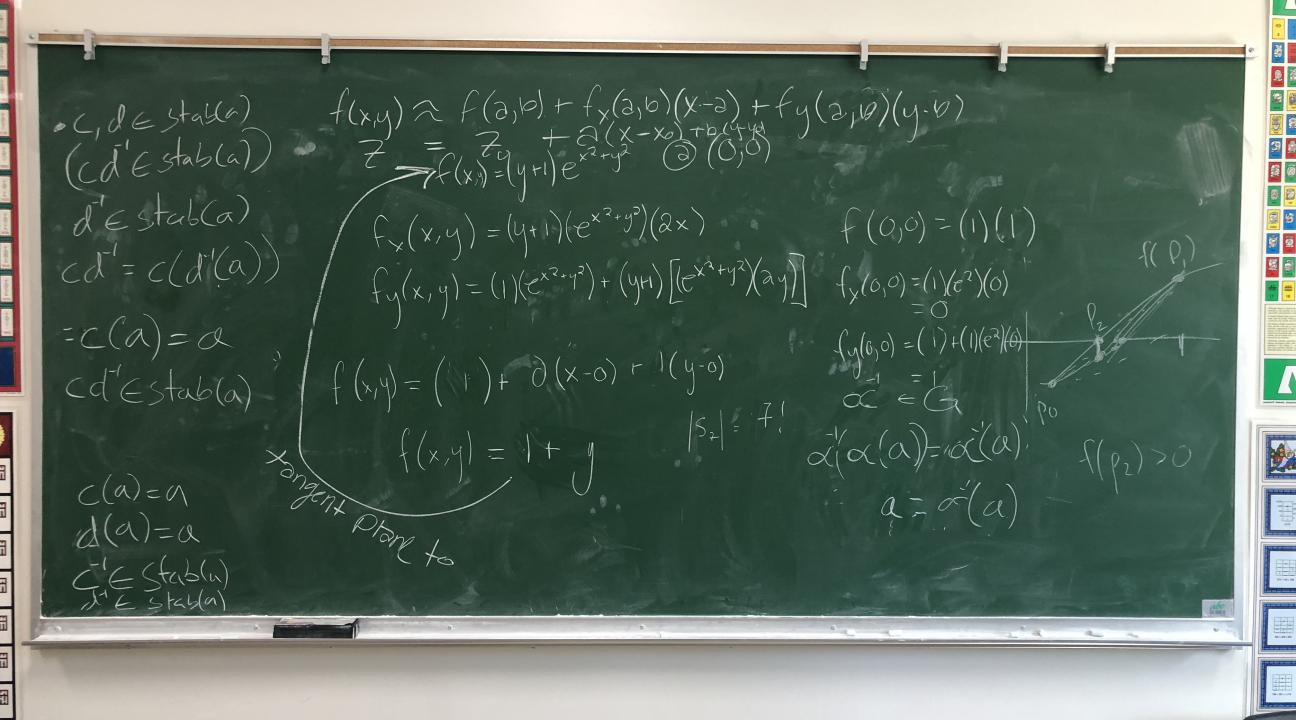 • c, d ∈ stab(a)
(cd⁻¹ ∈ stab(a))
d⁻¹ ∈ stab(a)
cd⁻¹ = c(d⁻¹(a))
= c(a) = a
cd⁻¹ ∈ stab(a)
c(a) = a
d(a) = a
c⁻¹ ∈ stab(a)
d⁻¹ ∈ stab(a)
f(x,y) ≈ f(a,b) + fx(a,b)(x-a) + fy(a,b)(y-b)
z = z₀ + a(x-x₀) + b(y-y₀)
f(x,y) = (y+1)e^(x²+y²) @ (0,0)
fx(x,y) = (y+1)(e^(x²+y²))(2x)
fy(x,y) = (1)(e^(x²+y²)) + (y+1)[(e^(x²+y²))(2y)]
f(x,y) = (1) + 0(x-0) + 1(y-0)
f(x,y) = 1 + y
tangent plane to
|S₂| = 7!
f(0,0) = (1)(1)
fx(0,0) = (1)(e²)(0)
= 0
fy(0,0) = (1)+(1)(e²)(0)
= 1
α⁻¹ ∈ G
α⁻¹α(a) = α⁻¹(a)
a = α⁻¹(a)
f(P₁)
P₂
P₀
f(p₂) > 0